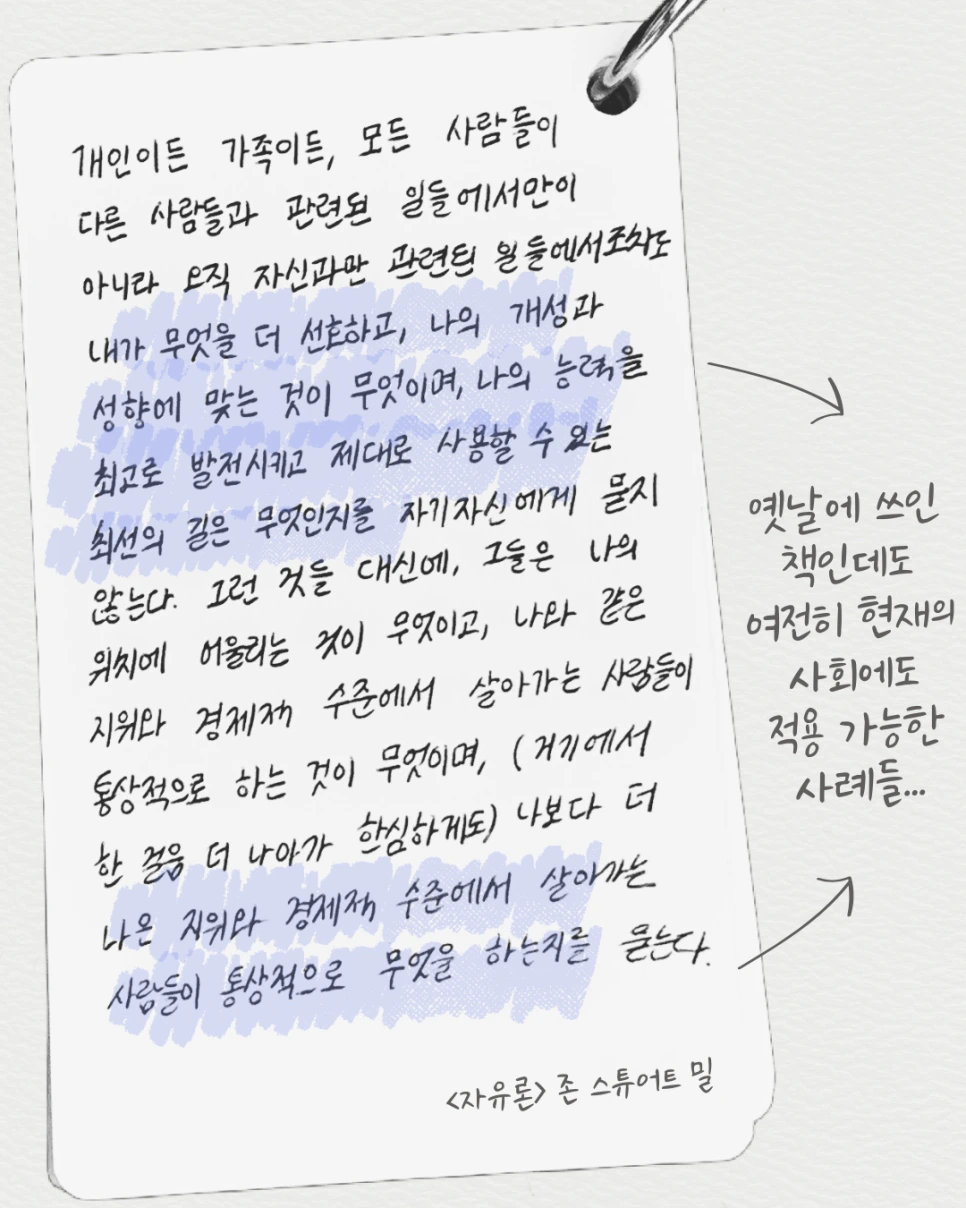 개인이든 가족이든, 모든 사람들이
다른 사람들과 관련된 일들에서만이
아니라 오직 자신과만 관련된 일들에서조차도
내가 무엇을 더 선호하고, 나의 개성과
성향에 맞는 것이 무엇이며, 나의 능력을
최고로 발전시키고 제대로 사용할 수 있는
최선의 길은 무엇인지를 자기자신에게 묻지
않는다. 그런 것들 대신에, 그들은 나의
위치에 어울리는 것이 무엇이고, 나와 같은
지위와 경제적 수준에서 살아가는 사람들이
통상적으로 하는 것이 무엇이며, (거기에서
한 걸음 더 나아가 한심하게도) 나보다 더
나은 지위와 경제적 수준에서 살아가는
사람들이 통상적으로 무엇을 하는지를 묻는다.
<자유론> 존 스튜어트 밀
옛날에 쓰인
책인데도
여전히 현재의
사회에도
적용 가능한
사례들...